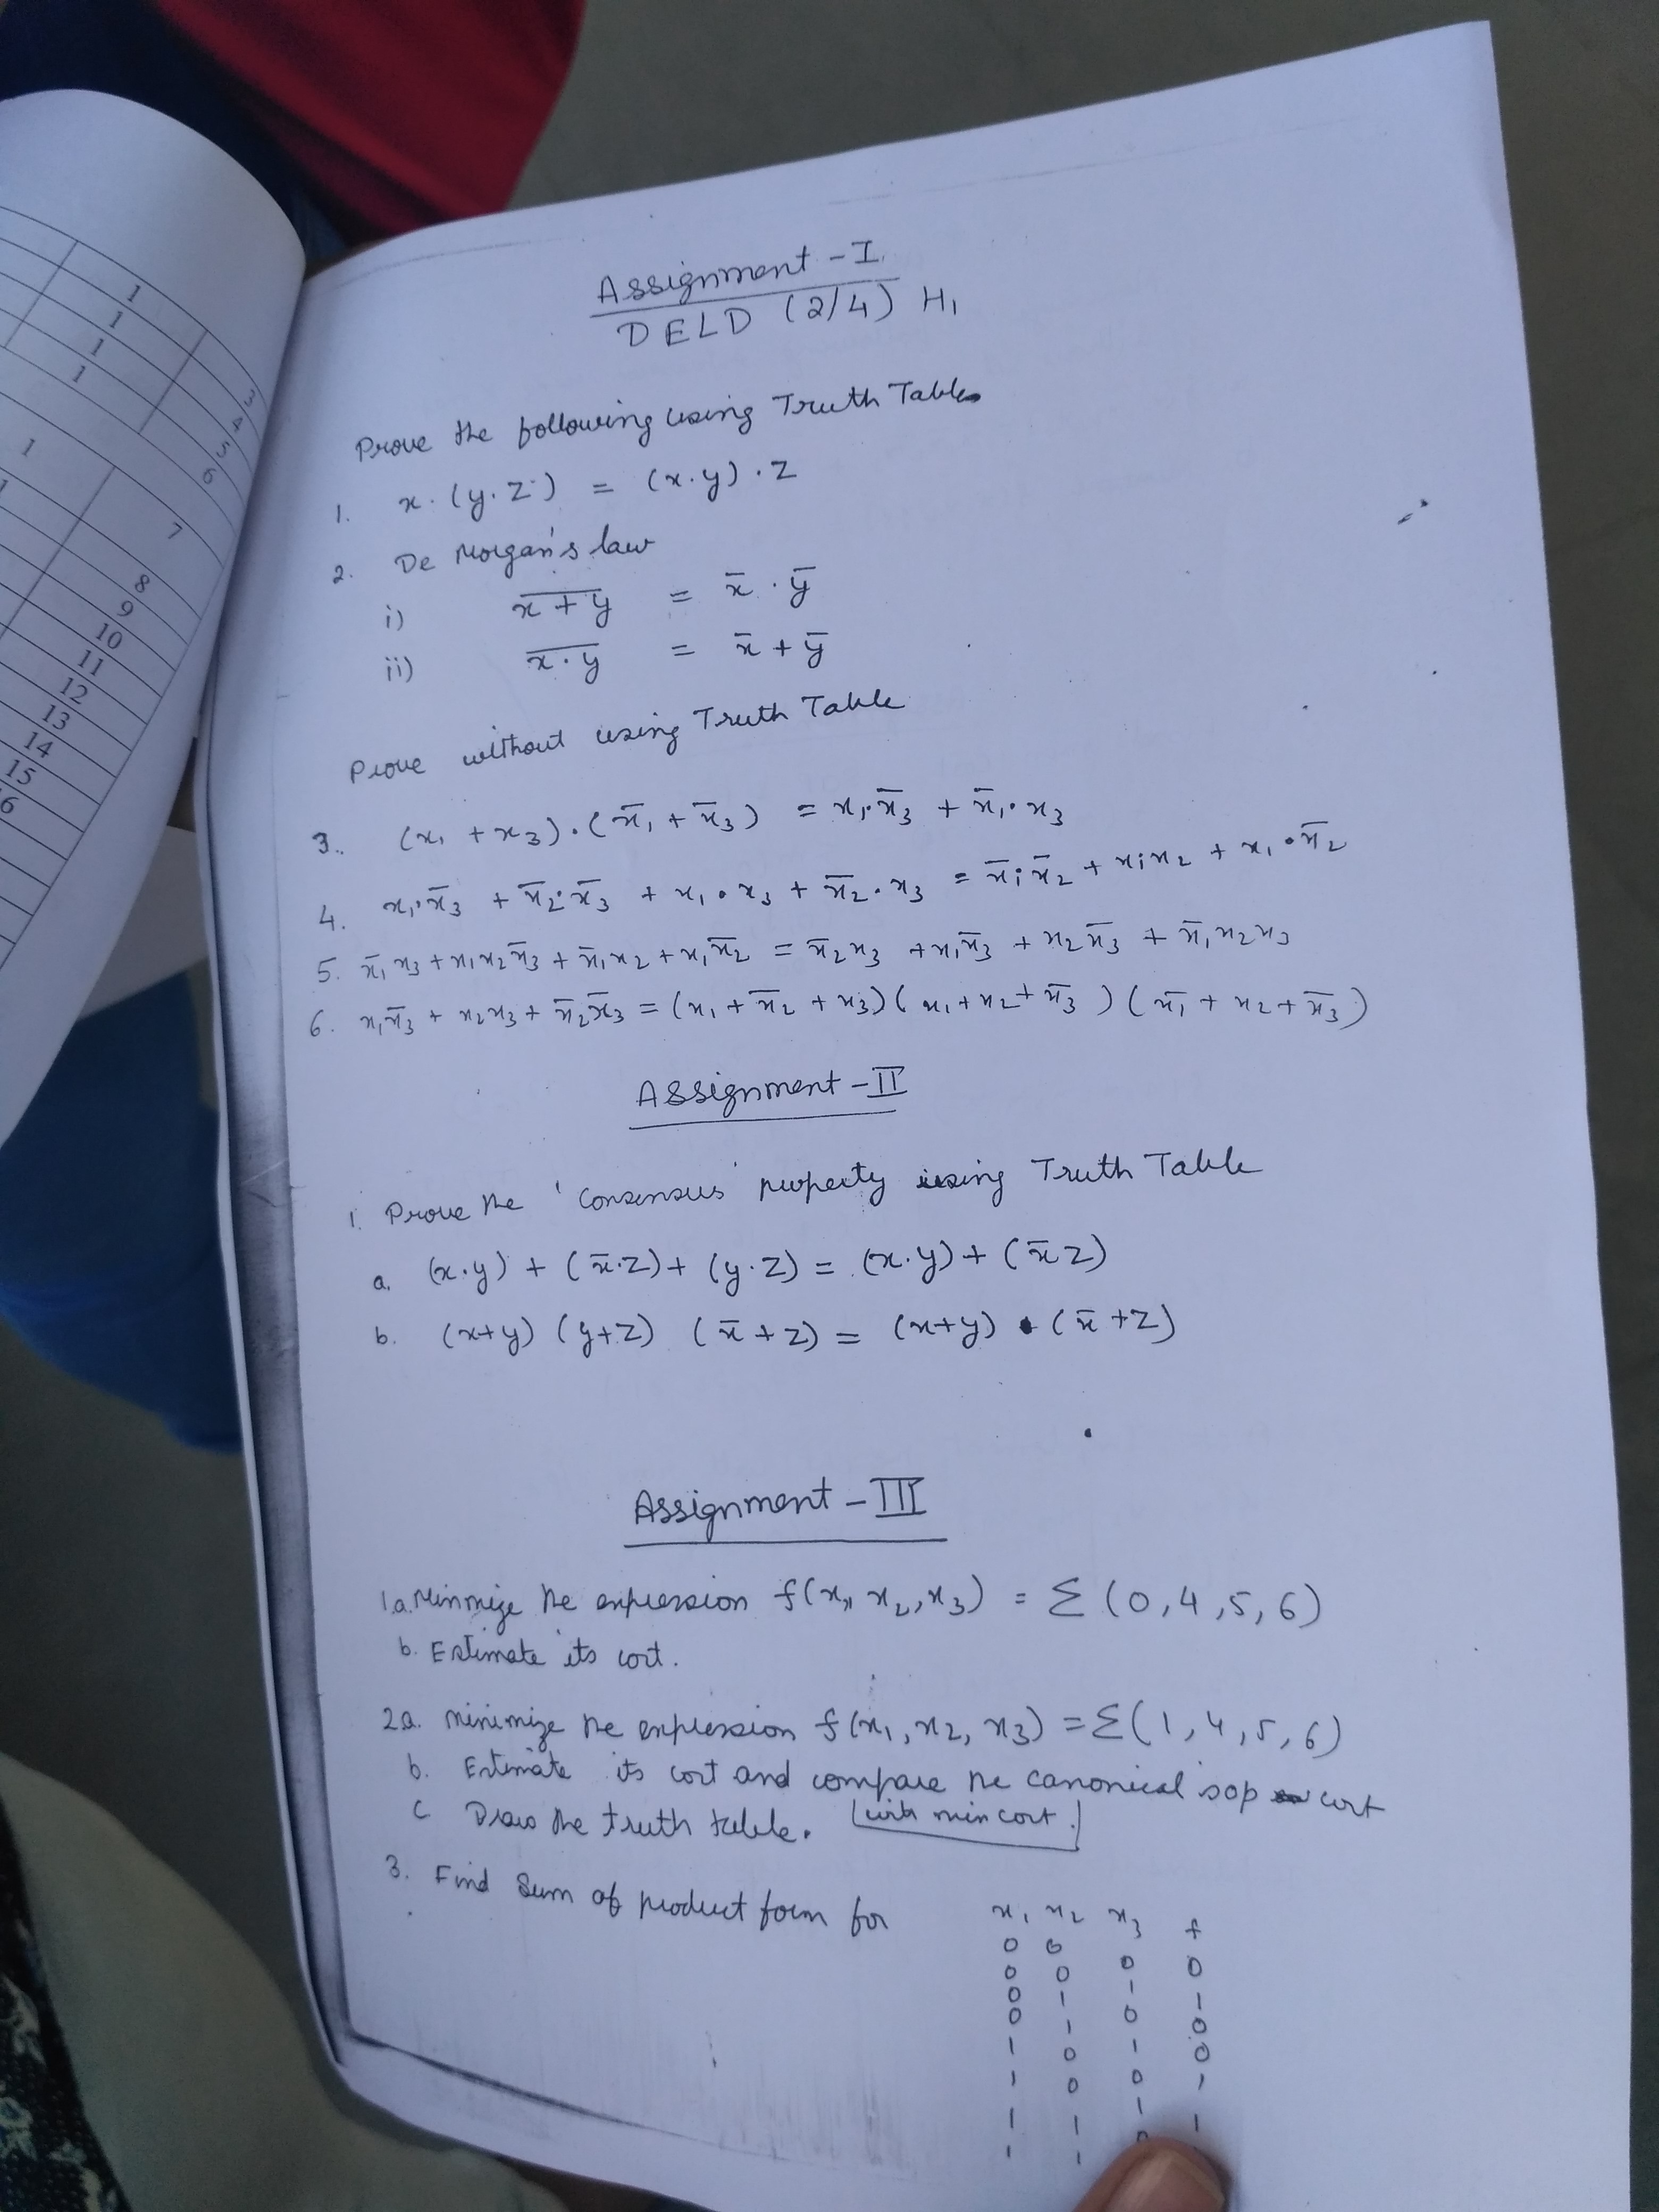 1
1
1
1
3
4
5
6
1
1
7
8
9
10
11
12
13
14
15
16
Assignment - I
DELD (2/4) H₁
Prove the following using Truth Table
1. x·(y·z) = (x·y)·z
2. De Morgan's law
i) \overline{x+y} = x̄·ȳ
ii) \overline{x·y} = x̄+ȳ
Prove without using Truth Table
3. (x₁ + x₃)·(x̄₁ + x̄₃) = x₁·x̄₃ + x̄₁·x₃
4. x₁·x̄₃ + x̄₂·x̄₃ + x₁·x₃ + x̄₂·x₃ = x̄₁·x̄₂ + x₁·x₂ + x₁·x̄₂
5. x̄₁x₃ + x₁x₂x̄₃ + x̄₁x₂ + x₁x̄₂ = x̄₂x₃ + x₁x̄₃ + x₂x̄₃ + x̄₁x₂x₃
6. x₁x̄₃ + x₂x₃ + x̄₂x̄₃ = (x₁ + x̄₂ + x₃)(x₁ + x₂ + x̄₃)(x̄₁ + x₂ + x̄₃)
Assignment - II
1. Prove the 'Consensus' property using Truth Table
a. (x·y) + (x̄·z) + (y·z) = (x·y) + (x̄z)
b. (x+y) (y+z) (x̄+z) = (x+y)·(x̄+z)
Assignment - III
1a. Minimize the expression f(x₁, x₂, x₃) = Σ(0,4,5,6)
b. Estimate its cost.
2a. minimize the expression f(x₁, x₂, x₃) = Σ(1,4,5,6)
b. Estimate its cost and compare the canonical sop cost
with min cost.
c Draw the truth table.
3. Find Sum of product form for
x₁ x₂ x₃ f
0 0 0 0
0 0 1 1
0 1 0 0
0 1 1 0
1 0 0 1
1 0 1 1
1 1 0
1 1